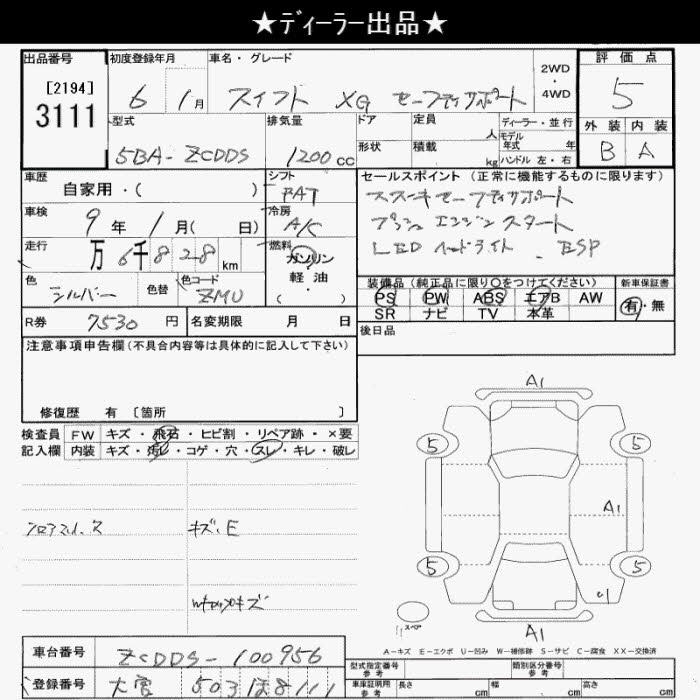 ★ディーラー出品★
出品番号 初度登録年月 車名・グレード 2WD ・4WD 評価点
[2194]
3111
6 1月 スイフト XG セーフティサポート 5
型式 排気量 ドア 定員 人 ディーラー・並行 外装 内装
5BA-ZCDDS 1200cc 形状 積載 kg モデル年式 年 ハンドル 左・右 B A
車歴 シフト セールスポイント (正常に機能するものに限ります)
自家用・( ) FAT スズキセーフティサポート
車検 9年 1月( 日) 冷房 A/C プッシュエンジンスタート
走行 万 6千 828 km 燃料 ガソリン LEDヘッドライト . ESP
軽油
( )
色 シルバー 色替 色コード ZMU
装備品 (純正品に限り○をつけてください) 新車保証書
PS PW ABS エアB AW 有・無
SR ナビ TV 本革
R券 7530 円 名変期限 月 日 後日品
注意事項申告欄 (不具合内容等は具体的に記入して下さい)
修復歴 有 [箇所 ]
検査員 FW キズ・飛石・ヒビ割・リペア跡・×要
記入欄 内装 キズ・汚レ・コゲ・穴・スレ・キレ・破レ
キズ、E
A1
5 5
A1
5 5
U1
スペア
A1
A-キズ E-エクボ U-凹み W-補修跡 S-サビ C-腐食 XX-交換済
車台番号 ZCDDS-100956
登録番号 大宮 503 ほ8111
型式指定番号 参考 類別区分番号 参考
車庫証明用 参考 長さ cm 幅 cm 高さ cm